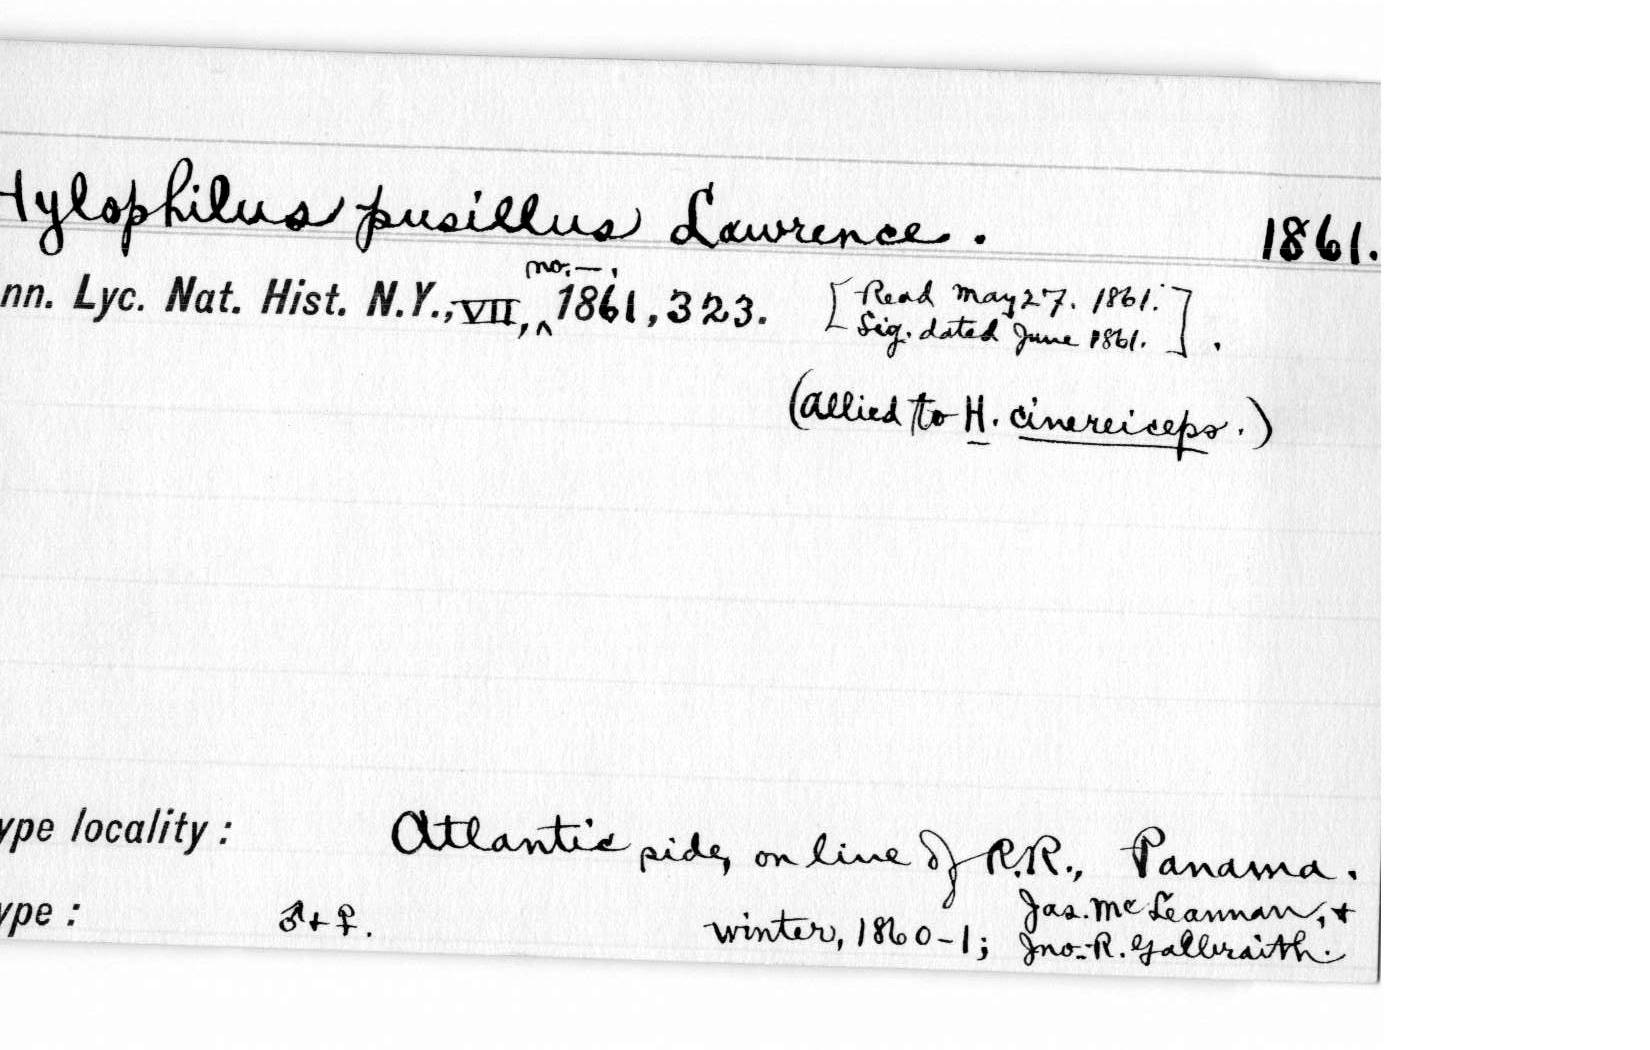 Hylophilus pusillus Lawrence. 1861.
nn. Lyc. Nat. Hist. N.Y., VII, ^ no. —, 1861, 323. [Read May 27. 1861.
Sig. dated June 1861.].
(allied to H. cinereiceps.)
ype locality: Atlantic side, on line of R.R., Panama.
ype: ♂ + ♀. winter, 1860-1; Jas. McLeannan, +
Jno. R. Galbraith.